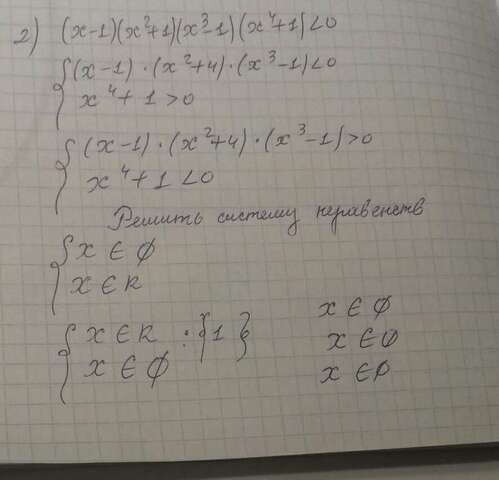 2) (x-1)(x²+1)(x³-1)(x⁴+1)<0
{(x-1)·(x²+4)·(x³-1)<0
x⁴+1>0
{(x-1)·(x²+4)·(x³-1)>0
x⁴+1<0
Решить систему неравенств
{x ∈ ∅
x ∈ R
{x ∈ R : {1}
x ∈ ∅
x ∈ ∅
x ∈ ∅
x ∈ ∅